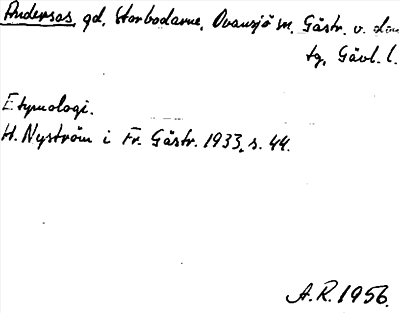 Andersas, gd, Storbodarne, Ovansjö sn, Gästr. v. dom
tg, Gävl. l.
Etymologi.
H. Nyström i Fr. Gästr. 1933, s. 44.
A.R. 1956.